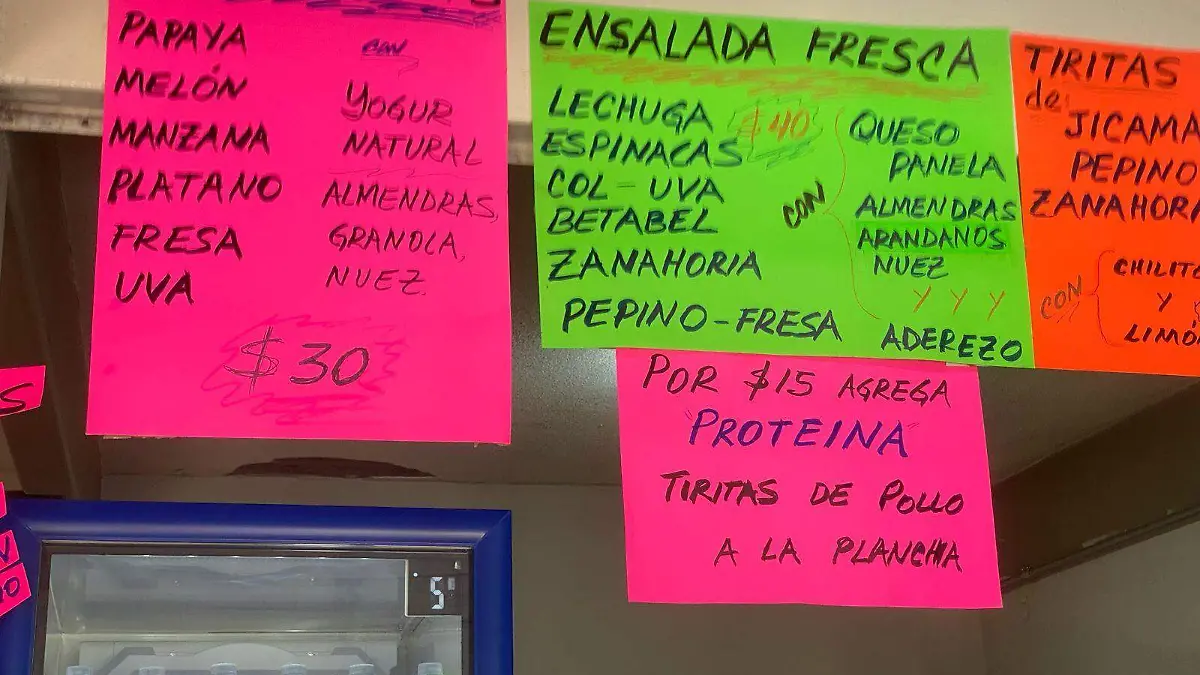 PAPAYA
MELÓN
MANZANA
PLATANO
FRESA
UVA
con
YOGUR
NATURAL
ALMENDRAS,
GRANOLA,
NUEZ.
$30
ENSALADA FRESCA
LECHUGA
ESPINACAS
COL-UVA
BETABEL
ZANAHORIA
PEPINO-FRESA
$40
CON
QUESO
PANELA
ALMENDRAS
ARANDANOS
NUEZ
Y Y Y
ADEREZO
TIRITAS
de:
JICAMA
PEPINO
ZANAHOR
CON
CHILITO
Y
LIMÓN
POR $15 AGREGA
"PROTEINA"
TIRITAS DE POLLO
A LA PLANCHA
S
5°